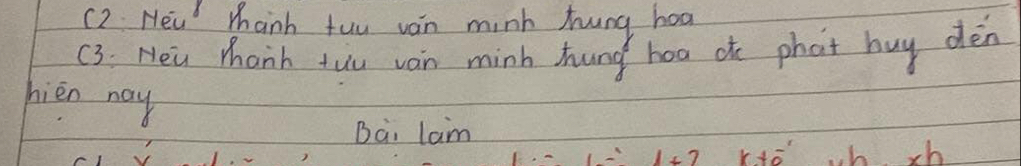 C2: Nêu thành tựu văn minh trung hoa
C3: Nêu thành tựu văn minh trung hoa đc phát huy đến
hiện nay
Bài làm